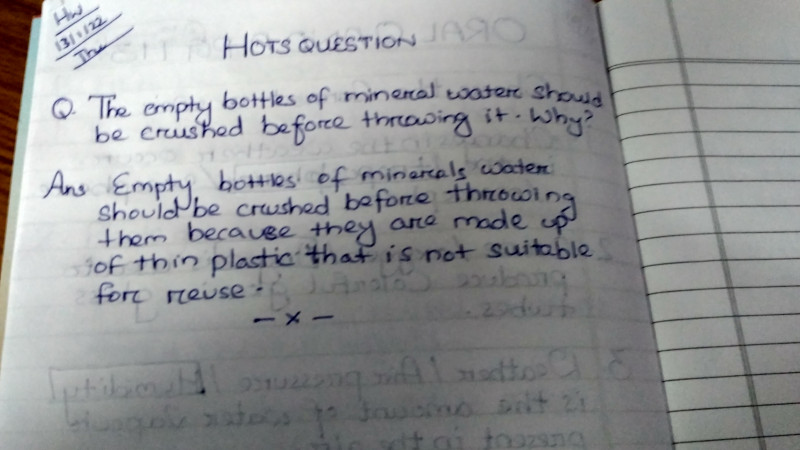 HW
13/1/22
Thu
HOTS QUESTION
Q. The empty bottles of mineral water should
be crushed before throwing it. Why?
Ans Empty bottles of minerals water
should be crushed before throwing
them because they are made up
of thin plastic that is not suitable
for reuse.
- x -